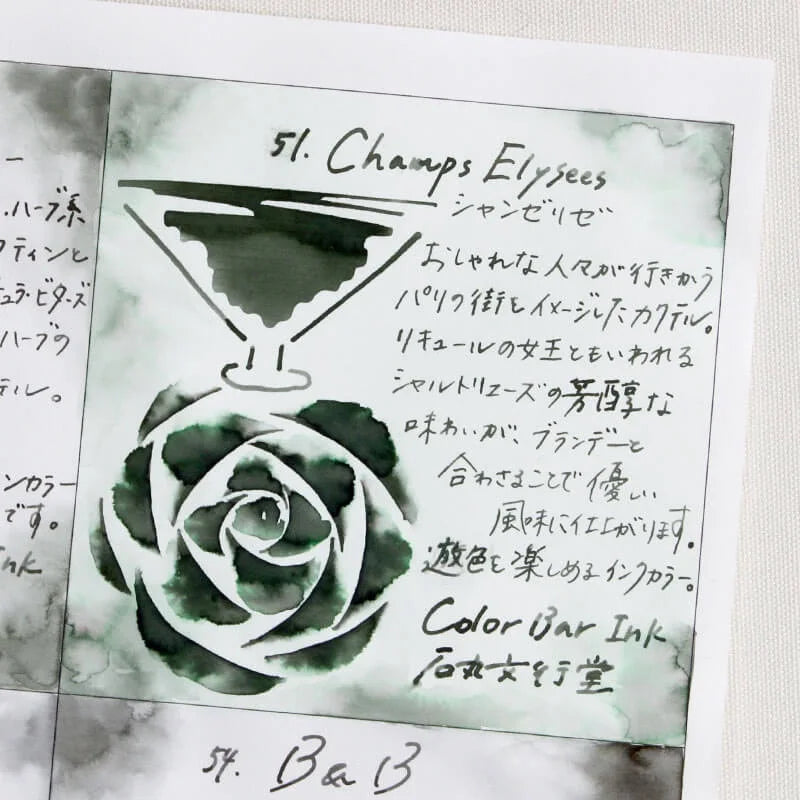 51. Champs Elysees
シャンゼリゼ
おしゃれな人々が行きかう
パリの街をイメージしたカクテル。
リキュールの女王ともいわれる
シャルトリューズの芳醇な
味わいが、ブランデーと
合わさることで優しい
風味に仕上がります。
遊色を楽しめるインクカラー。
Color Bar Ink
石丸文行堂
ハーブ系
ティンと
ュラ・ビターズ
ハーブの
テル。
ンカラー
です。
Ink
54. B&B